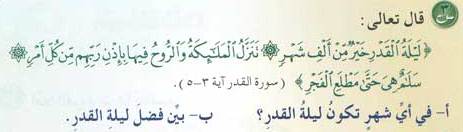 س٣ قال تعالى:
﴿ لَيْلَةُ الْقَدْرِ خَيْرٌ مِّنْ أَلْفِ شَهْرٍ ۝ تَنَزَّلُ الْمَلَٰٓئِكَةُ وَالرُّوحُ فِيهَا بِإِذْنِ رَبِّهِم مِّن كُلِّ أَمْرٍ ۝
سَلَٰمٌ هِىَ حَتَّىٰ مَطْلَعِ الْفَجْرِ ﴾ (سورة القدر آية ٣-٥).
أ- في أيِّ شهرٍ تكونُ ليلةُ القدرِ؟ ب- بيِّن فضلَ ليلةِ القدرِ.